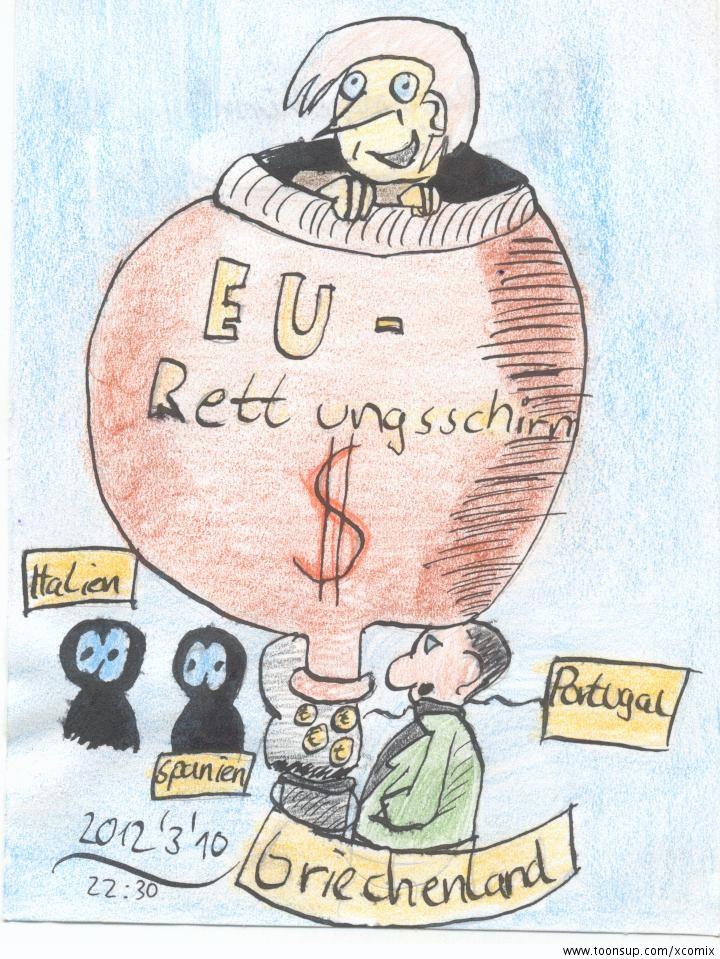 EU -
Rettungsschirm
$
Italien
Portugal
€ €
€ €
Spanien
2012'3'10
22:30
Griechenland
www.toonsup.com/xcomix